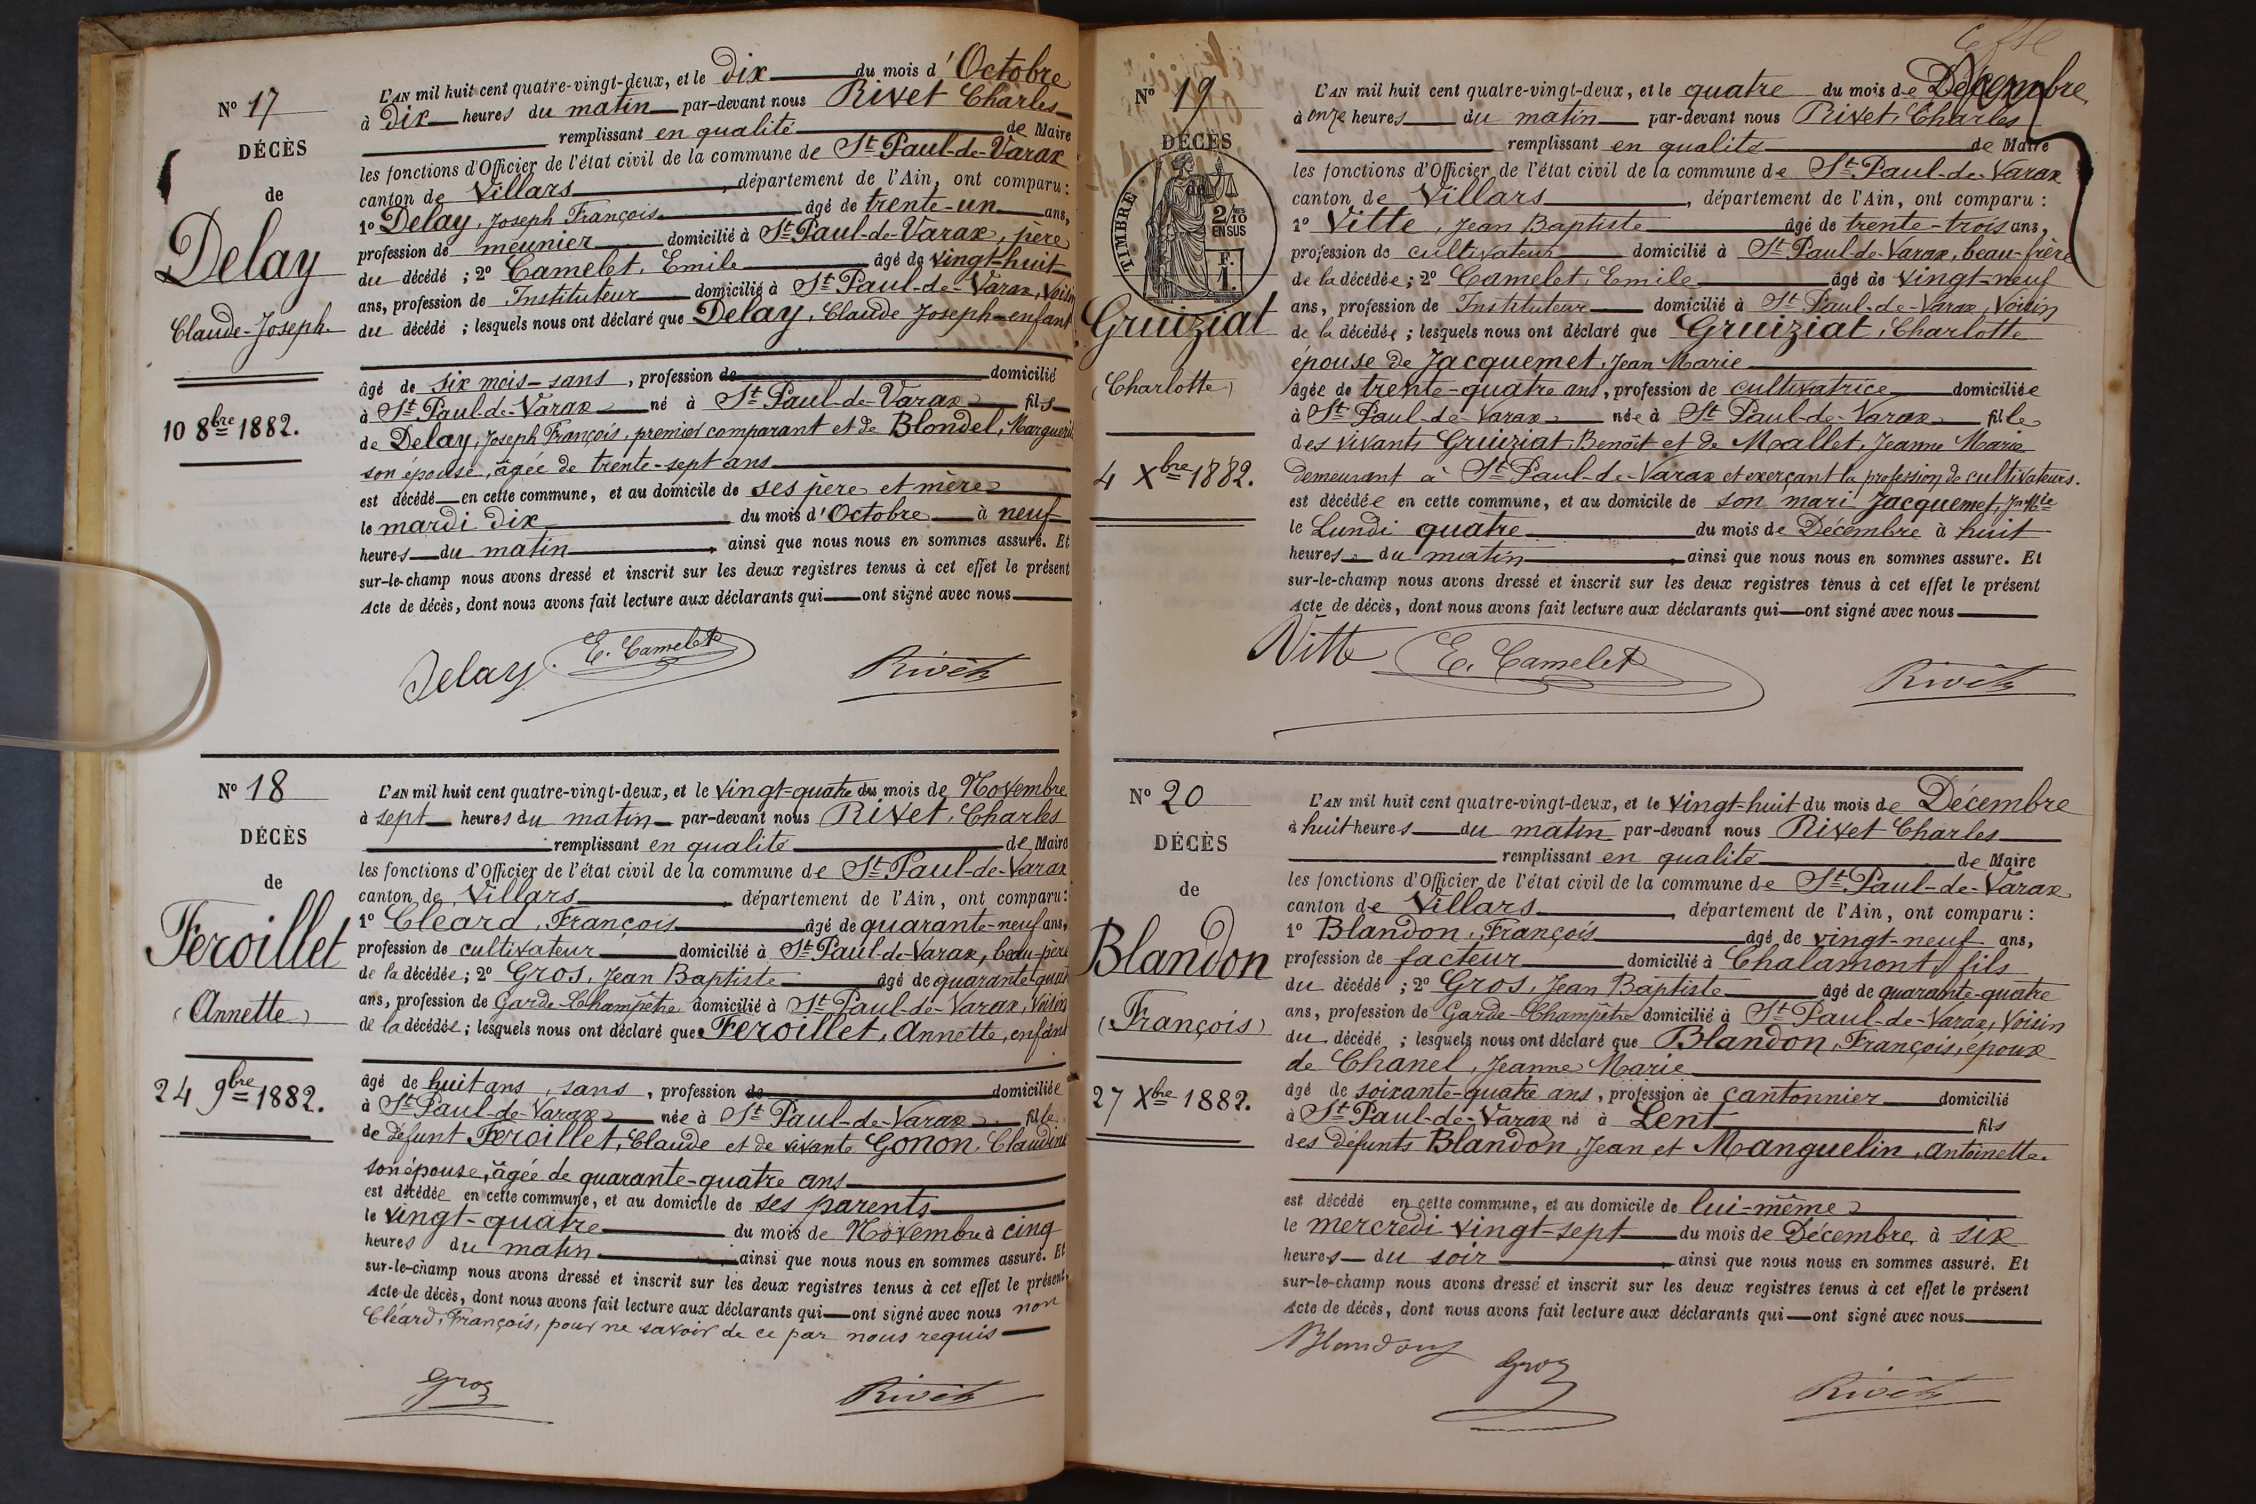 Nº 17
DÉCÈS
de
Delay
Claude-Joseph
10 8bre 1882.
L'AN mil huit cent quatre-vingt-deux, et le dix du mois d'Octobre
à dix heures du matin par-devant nous Rivet Charles
remplissant en qualité de Maire
les fonctions d'Officier de l'état civil de la commune de St Paul-de-Varax
canton de Villars, département de l'Ain, ont comparu :
1º Delay, Joseph François âgé de trente-un ans,
profession de meunier domicilié à St Paul-de-Varax, père
du décédé ; 2º Camelet, Emile âgé de vingt-huit
ans, profession de Instituteur domicilié à St Paul-de-Varax, Voisin
du décédé ; lesquels nous ont déclaré que Delay, Claude Joseph enfant
âgé de six mois sans, profession de domicilié
à St Paul-de-Varax né à St Paul-de-Varax fils
de Delay, Joseph François, premier comparant et de Blondel, Marguerite
son épouse, âgée de trente-sept ans
est décédé en cette commune, et au domicile de ses père et mère
le mardi dix du mois d'Octobre à neuf
heures du matin, ainsi que nous nous en sommes assuré. Et
sur-le-champ nous avons dressé et inscrit sur les deux registres tenus à cet effet le présent
Acte de décès, dont nous avons fait lecture aux déclarants qui ont signé avec nous
Delay. E. Camelet Rivet
Nº 18
DÉCÈS
de
Feroillet
(Annette)
24 9bre 1882.
L'AN mil huit cent quatre-vingt-deux, et le vingt-quatre du mois de Novembre
à sept heures du matin par-devant nous Rivet, Charles
remplissant en qualité de Maire
les fonctions d'Officier de l'état civil de la commune de St Paul-de-Varax
canton de Villars, département de l'Ain, ont comparu :
1º Cléard, François âgé de quarante-neuf ans,
profession de cultivateur domicilié à St Paul-de-Varax, beau-père
de la décédée ; 2º Gros, Jean Baptiste âgé de quarante-quatre
ans, profession de Garde-Champêtre domicilié à St Paul-de-Varax, Voisin
de la décédée ; lesquels nous ont déclaré que Feroillet, Annette, enfant
âgé de huit ans, sans, profession de domiciliée
à St Paul-de-Varax née à St Paul-de-Varax fille
de défunt Feroillet, Claude et de vivante Gonon, Claudine
son épouse, âgée de quarante-quatre ans
est décédée en cette commune, et au domicile de ses parents
le vingt-quatre du mois de Novembre à cinq
heures du matin, ainsi que nous nous en sommes assuré. Et
sur-le-champ nous avons dressé et inscrit sur les deux registres tenus à cet effet le présent
Acte de décès, dont nous avons fait lecture aux déclarants qui ont signé avec nous non
Cléard, François, pour ne savoir de ce par nous requis
Gros Rivet
Nº 19
DÉCÈS
de
TIMBRE
2/10es
EN SUS
F.
1.
Gruiziat
(Charlotte)
4 Xbre 1882.
L'AN mil huit cent quatre-vingt-deux, et le quatre du mois de Décembre
à onze heures du matin par-devant nous Rivet, Charles
remplissant en qualité de Maire
les fonctions d'Officier de l'état civil de la commune de St Paul-de-Varax
canton de Villars, département de l'Ain, ont comparu :
1º Vitte, Jean Baptiste âgé de trente-trois ans,
profession de cultivateur domicilié à St Paul-de-Varax, beau-frère
de la décédée ; 2º Camelet, Emile âgé de vingt-neuf
ans, profession de Instituteur domicilié à St Paul-de-Varax, Voisin
de la décédée ; lesquels nous ont déclaré que Gruiziat, Charlotte
épouse de Jacquemet, Jean Marie
âgée de trente-quatre ans, profession de cultivatrice domiciliée
à St Paul-de-Varax née à St Paul-de-Varax fille
des vivants Gruiziat, Benoît et de Mallet, Jeanne Marie
demeurant à St Paul-de-Varax et exerçant la profession de cultivateurs.
est décédée en cette commune, et au domicile de son mari Jacquemet, Jn Mie
le Lundi quatre du mois de Décembre à huit
heures du matin, ainsi que nous nous en sommes assuré. Et
sur-le-champ nous avons dressé et inscrit sur les deux registres tenus à cet effet le présent
Acte de décès, dont nous avons fait lecture aux déclarants qui ont signé avec nous
Vitte E. Camelet Rivet
Nº 20
DÉCÈS
de
Blandon
(François)
27 Xbre 1882.
L'AN mil huit cent quatre-vingt-deux, et le vingt-huit du mois de Décembre
à huit heures du matin par-devant nous Rivet Charles
remplissant en qualité de Maire
les fonctions d'Officier de l'état civil de la commune de St Paul-de-Varax
canton de Villars, département de l'Ain, ont comparu :
1º Blandon, François âgé de vingt-neuf ans,
profession de facteur domicilié à Chalamont, fils
du décédé ; 2º Gros, Jean Baptiste âgé de quarante-quatre
ans, profession de Garde-Champêtre domicilié à St Paul-de-Varax, Voisin
du décédé ; lesquels nous ont déclaré que Blandon, François, époux
de Chanel, Jeanne Marie
âgé de soixante-quatre ans, profession de cantonnier domicilié
à St Paul-de-Varax né à Lent fils
des défunts Blandon, Jean et Manguelin, Antoinette.
est décédé en cette commune, et au domicile de lui-même
le mercredi vingt-sept du mois de Décembre à six
heures du soir, ainsi que nous nous en sommes assuré. Et
sur-le-champ nous avons dressé et inscrit sur les deux registres tenus à cet effet le présent
Acte de décès, dont nous avons fait lecture aux déclarants qui ont signé avec nous
Blandon Gros Rivet